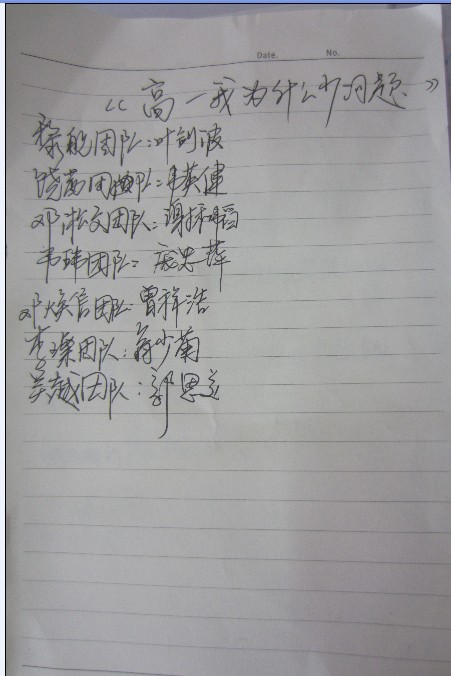 Date. No.
《高一我为什么少问题》
团队:叶剑波
团队:韦英健
邓淞文团队:谢振韬
韦玮团队:庞忠萍
邓焕官团队:曾祥浩
李璨团队:蒋少菊
吴越团队:郭恩